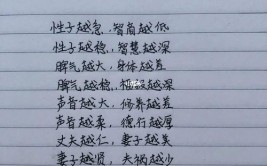 性子越急，智商越低
性子越稳，智慧越深
脾气越大，身体越差
脾气越稳，越深
声音越大，修养越差
声音越柔，德行越厚
丈夫越仁，妻子越美
妻子越贤，夫祸越少